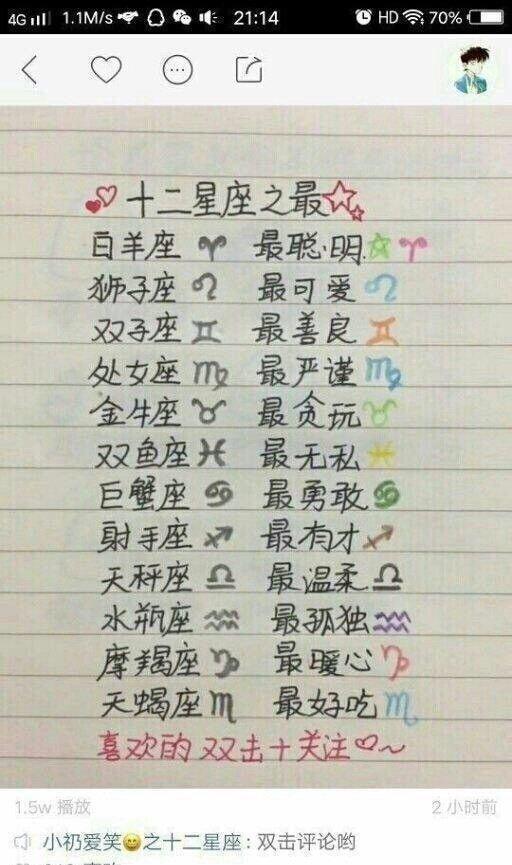 4G 1.1M/s 21:14 HD 70%
十二星座之最
白羊座 ♈ 最聪明 ♈
狮子座 ♌ 最可爱 ♌
双子座 ♊ 最善良 ♊
处女座 ♍ 最严谨 ♍
金牛座 ♉ 最贪玩 ♉
双鱼座 ♓ 最无私 ♓
巨蟹座 ♋ 最勇敢 ♋
射手座 ♐ 最有才 ♐
天秤座 ♎ 最温柔 ♎
水瓶座 ♒ 最孤独 ♒
摩羯座 ♑ 最暖心 ♑
天蝎座 ♏ 最好吃 ♏
喜欢的双击十关注♡~
1.5w 播放 2 小时前
小礽爱笑😄之十二星座：双击评论哟